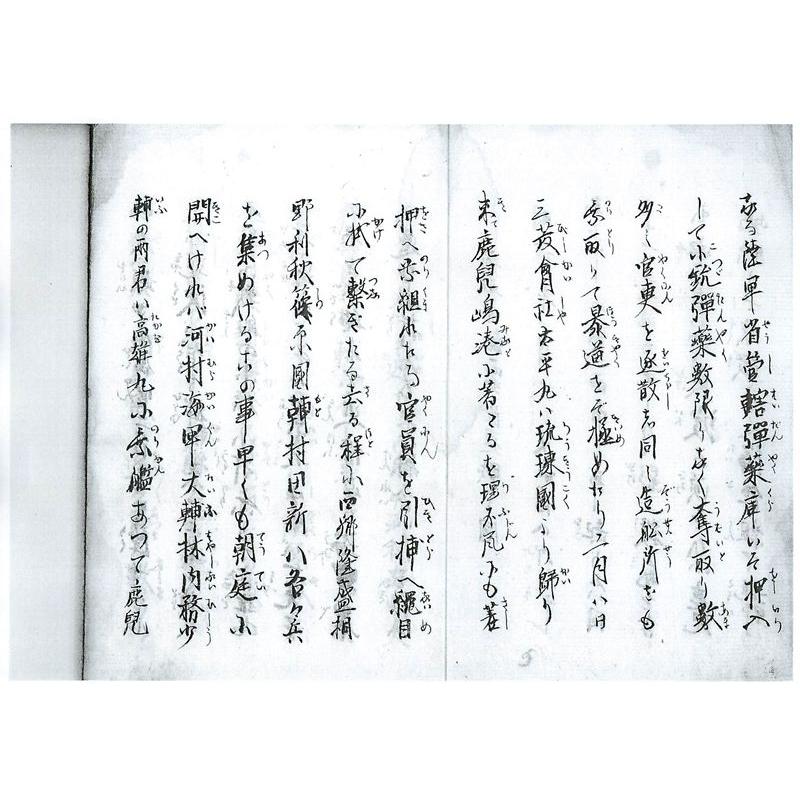 ある陸軍省管轄彈藥庫にぞ押入
して小銃彈藥數限りなく奪取り數
多く官吏を逐散し同し造船所をも
乘取りて暴道をぞ極めたり二月八日
三菱會社太平丸ハ琉球國より歸り
來鹿兒嶋港小着たるを理不尽にも
押へ乘組れたる官員を引捕へ縄目
小掛て繋ぎたる去る程小西郷隆盛桐
野利秋篠原國幹村田新八各々兵
を集めけるこの事早くも朝庭小
聞へけれバ河村海軍大輔林内務少
輔の両君ハ高雄丸小乘艦あつて鹿兒